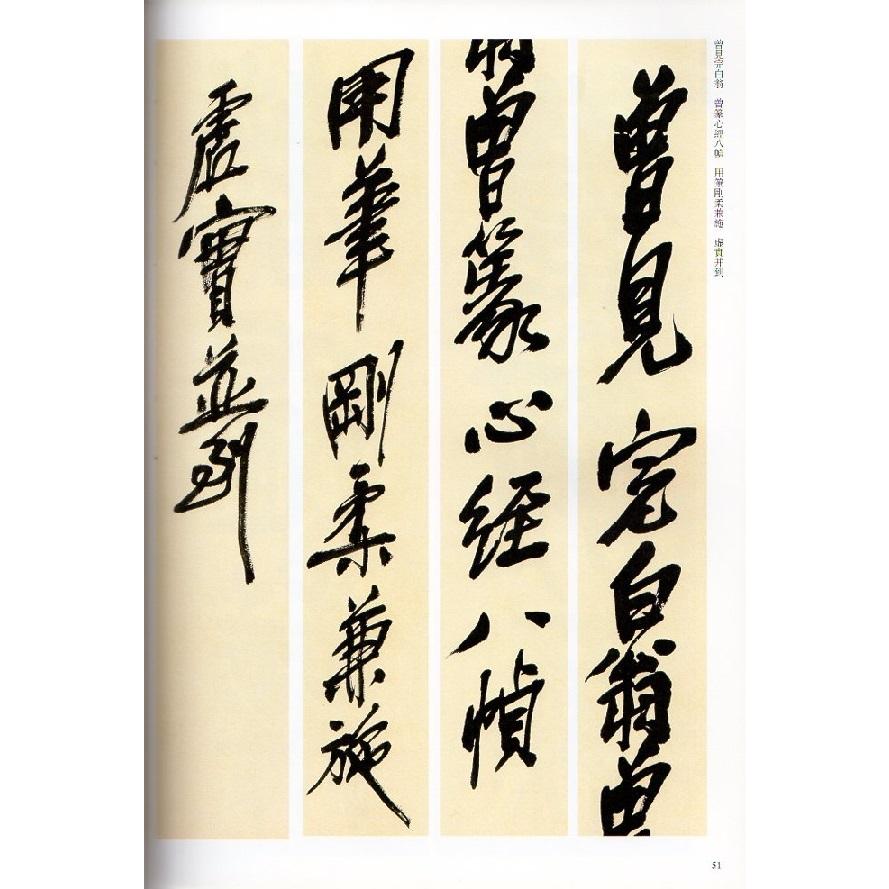 曾見完白翁 曾篆心經八幀 用筆剛柔兼施 虛實並到
曾見完白翁曾
翁曾篆心經八幀
用筆剛柔兼施
虛實並到
51